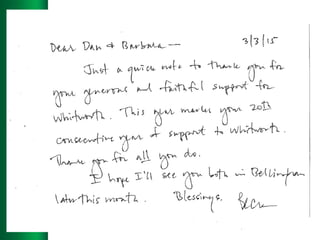 Dear Dan & Barbara — 3/3/15
Just a quick note to thank you for
your generous and faithful support for
Whitworth. This year marks your 20th
consecutive year of support to Whitworth.
Thank you for all you do.
I hope I'll see you both in Bellingham
later this month. Blessings,